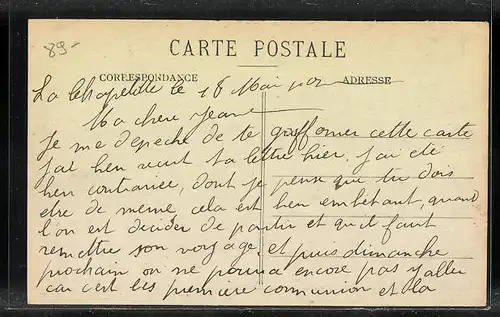 89-
CARTE POSTALE
CORRESPONDANCE
ADRESSE
La Chapelle le 18 Mai
Ma chere Jeane
Je me depeche de te griffoner cette carte
j'ai bien recut ta lettre hier, j'ai eté
bien contrariee, dont je pense que tu dois
etre de meme, cela est bien embetant, quand
l'on est decider de partir et qu'il faut
remettre son voyage, et puis dimanche
prochain on ne pourra encore pas y aller
car c'est les premiere communion et la